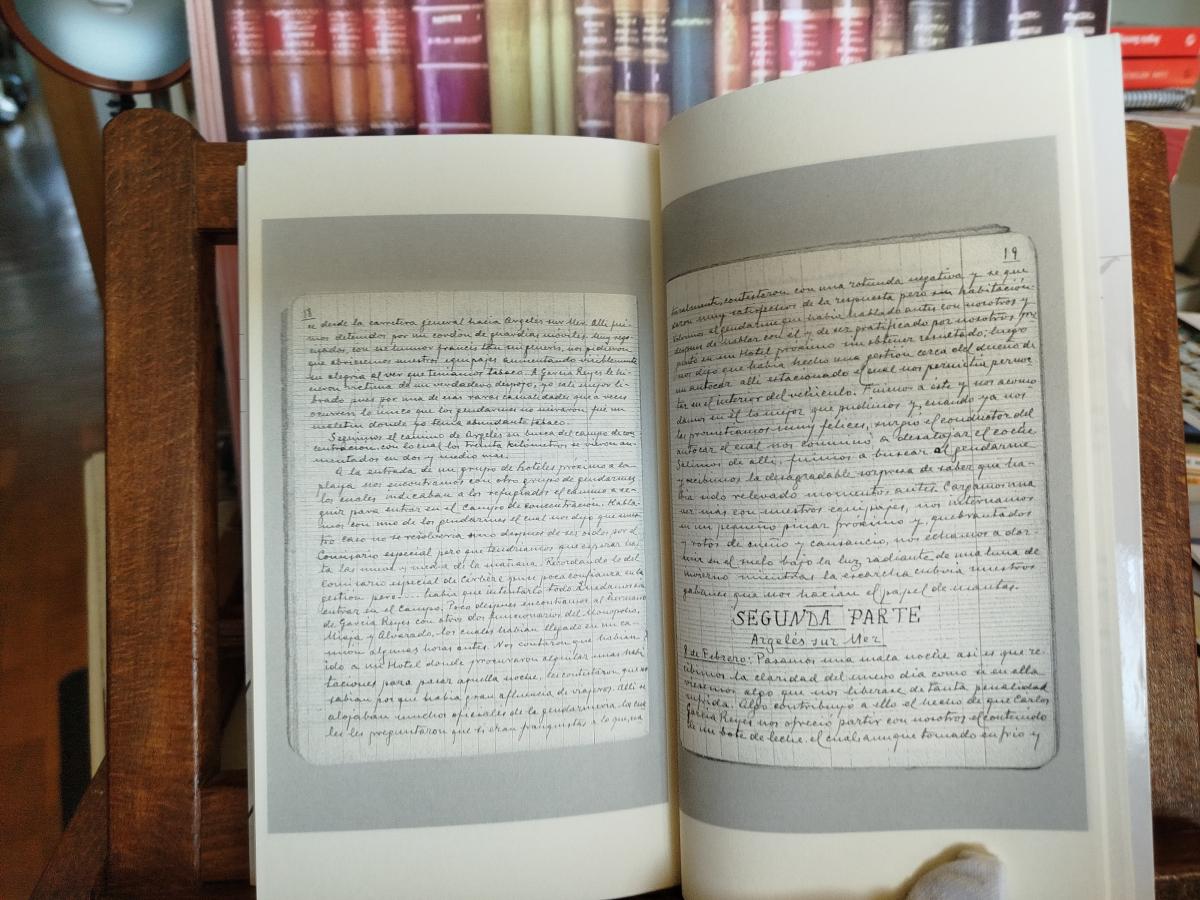 18
se desde la carretera general hacia Argelés sur Mer. Allí fui-
mos detenidos por un cordón de guardia móviles. Muy rego-
cijados, con ese humor francés tan sui géneris, nos pidieron
que abriésemos nuestros equipajes aumentando visiblemente
su alegría al ver que teníamos tabaco. A García Reyes le hi-
cieron víctima de un verdadero despojo; yo salí mejor li-
brado pues por una de esas raras casualidades que a veces
ocurren lo único que los gendarmes no miraron fue un
maletín donde yo tenía abundante tabaco.
Seguimos el camino de Argelés en busca del campo de con
centración, con lo cual los treinta kilómetros se vieron au-
mentados en dos y medio más.
A la entrada de un grupo de hoteles próximo a la
playa nos encontramos con otro grupo de gendarmes
los cuales indicaban a los refugiados el camino a se-
guir para entrar en el campo de concentración. Habla-
mos con uno de los gendarmes el cual nos dijo que nues-
tro caso no se resolvería sino después de ser oído por el
Comisario especial pero que tendríamos que esperar has-
ta las nueve y media de la mañana. Recordando lo del
Comisario especial de Cerbère puse poca confianza en la
gestión pero.... había que intentarlo todo
entrar en el campo. Poco después encontramos al hermano
de García Reyes con otros dos funcionarios del Monopolio,
Mieja y Alvarado, los cuales habían llegado en un ca-
mión algunas horas antes. Nos contaron que habían
ido a un Hotel donde procuraron alquilar unas habi
taciones para pasar aquella noche, les contestaron que no
sabían por que había gran afluencia de viajeros. Allí se
alojaban muchos oficiales de la gendarmería los cua
les les preguntaron que si eran franquistas a lo que, na
19
turalmente, contestaron con una rotunda negativa y se que
daron muy satisfechos de la respuesta pero sin habitación.
Volvimos al gendarme que había hablado antes con nosotros y
después de hablar con él y de ser gratificado por nosotros pre
guntó en un Hotel próximo sin obtener resultado; luego
nos dijo que había hecho una gestión cerca del dueño de
un autocar allí estacionado el cual nos permitía pernoc-
tar en el interior del vehículo. Fuimos a este y nos acomo
damos en él lo mejor que pudimos y, cuando ya nos
las prometíamos muy felices, surgió el conductor del
autocar el cual nos conminó a desalojar el coche
Salimos de allí, fuimos a buscar al gendarme
y recibimos la desagradable sorpresa de saber que ha-
bía sido relevado momentos antes. Cargamos una
vez más con nuestros equipajes, nos internamos
en un pequeño pinar próximo y quebrantados
y rotos de sueño y cansancio, nos echamos a dor-
mir en el suelo bajo la luz radiante de una luna de
invierno mientras la escarcha cubría nuestros
gabanes que nos hacían el papel de mantas.
SEGUNDA PARTE
Argelés sur Mer
8 de Febrero: Pasamos una mala noche así es que re-
cibimos la claridad del nuevo día como si en ella
viésemos algo que nos liberase de tanta penalidad
sufrida. Algo contribuyó a ello el hecho de que Carlos
García Reyes nos ofreció partir con nosotros el contenido
de un bote de leche, el cual, aunque tomado en frío y